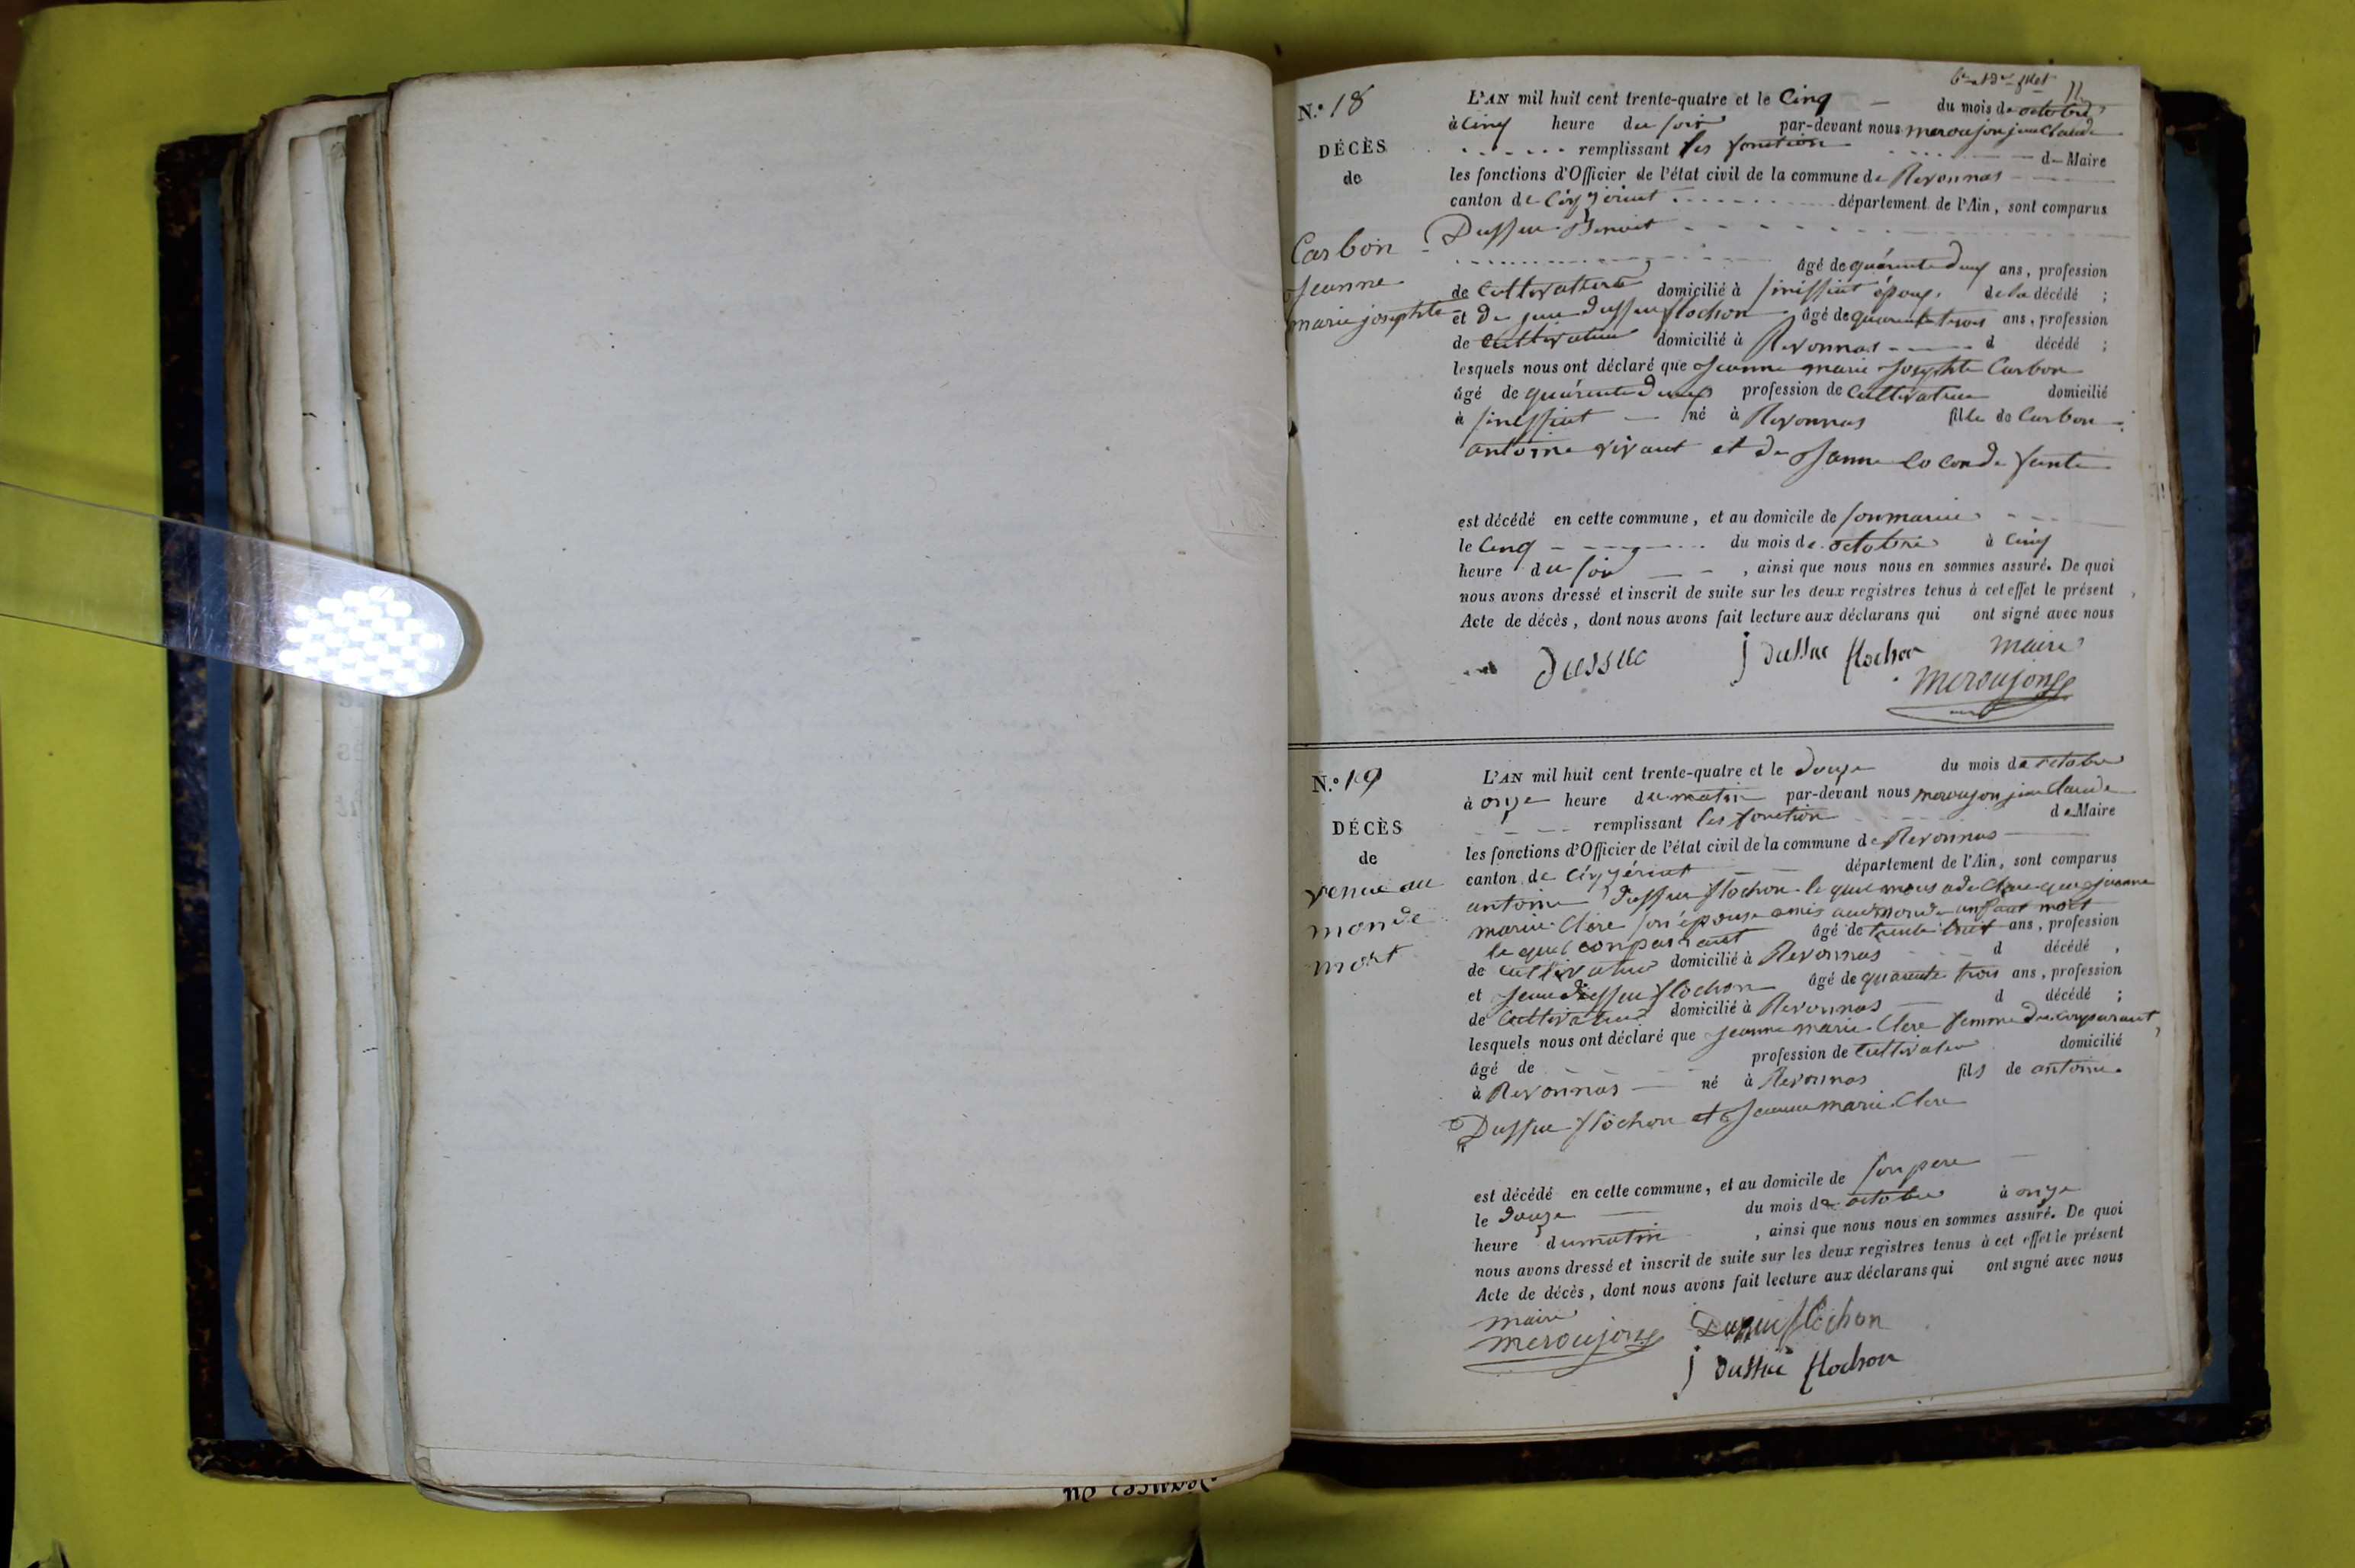 N.° 18
DÉCÈS
de
Carbon
Jeanne
marie josephte
L'AN mil huit cent trente-quatre et le Cinq du mois de octobre
à Cinq heure du soir par-devant nous meroujon jean Claude
remplissant les fonction de Maire
les fonctions d'Officier de l'état civil de la commune de Revonnas
canton de Ceyzériat département de l'Ain, sont comparus
Dussuc Benoit
âgé de quarente deux ans, profession
de Cultivateur domicilié à sinissiat époux de la décédé ;
et de jean dussuc flochon âgé de quarente trois ans, profession
de Cultivateur domicilié à Revonnas d décédé ;
lesquels nous ont déclaré que Jeanne marie Josephte Carbon
âgé de quarente deux profession de Cultivateur domicilié
à sinissiat né à Revonnas fille de Carbon
antoine vivant et de Jeanne
est décédé en cette commune, et au domicile de son marie
le Cinq du mois de octobre à Cinq
heure du soir, ainsi que nous nous en sommes assuré. De quoi
nous avons dressé et inscrit de suite sur les deux registres tenus à cet effet le présent
Acte de décès, dont nous avons fait lecture aux déclarans qui ont signé avec nous
Dussuc J dussuc flochon maire
meroujon
N.° 19
DÉCÈS
de
venue au
monde
mort
L'AN mil huit cent trente-quatre et le douze du mois de octobre
à onze heure du matin par-devant nous meroujon jean Claude
remplissant les fonction de Maire
les fonctions d'Officier de l'état civil de la commune de Revonnas
canton de Ceyzériat département de l'Ain, sont comparus
antoine dussuc flochon le quel nous a declare que jeanne
marie Clere son épouse a mis au monde un enfant mort
le quel comparant âgé de trente huit ans, profession
de cultivateur domicilié à Revonnas d décédé,
et Jean dussuc flochon âgé de quarente trois ans, profession
de Cultivateur domicilié à Revonnas d décédé ;
lesquels nous ont déclaré que jeanne marie Clere femme du comparant,
âgé de profession de Cultivateur domicilié
à Revonnas né à Revonnas fils de antoine
Dussuc flochon et Jeanne marie Clere
est décédé en cette commune, et au domicile de son pere
le douze du mois de octobre à onze
heure du matin, ainsi que nous nous en sommes assuré. De quoi
nous avons dressé et inscrit de suite sur les deux registres tenus à cet effet le présent
Acte de décès, dont nous avons fait lecture aux déclarans qui ont signé avec nous
maire
meroujon Dussuc flochon
J dussuc flochon